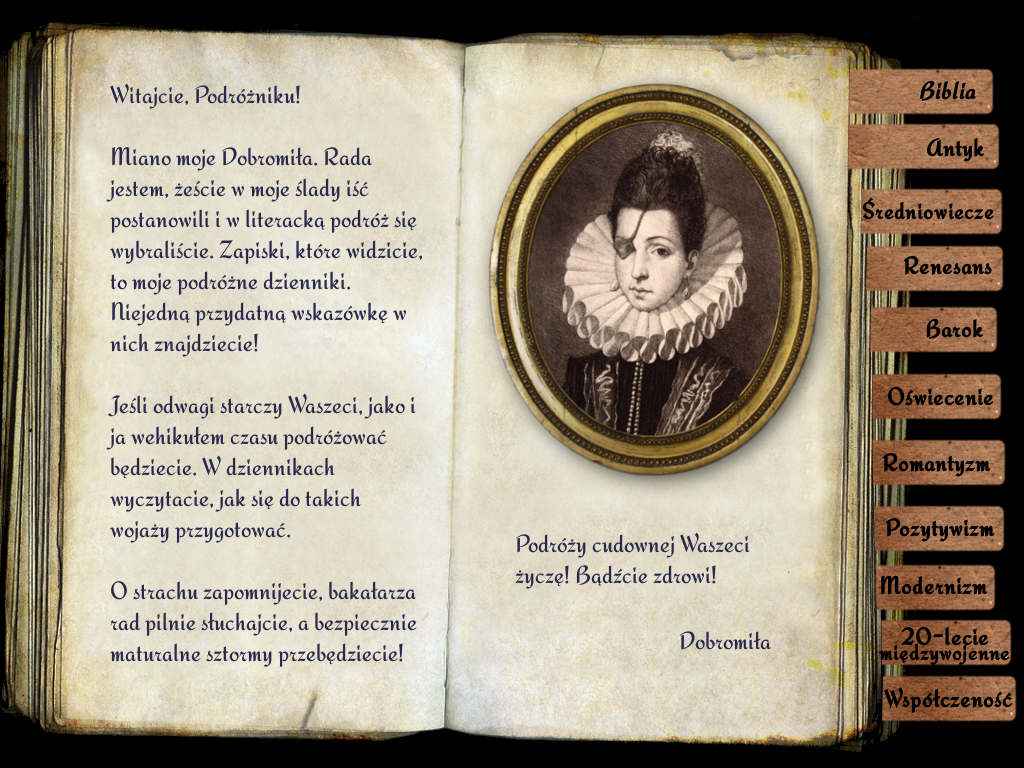 Witajcie, Podróżniku!
Miano moje Dobromiła. Rada
jestem, żeście w moje ślady iść
postanowili i w literacką podróż się
wybraliście. Zapiski, które widzicie,
to moje podróżne dzienniki.
Niejedną przydatną wskazówkę w
nich znajdziecie!
Jeśli odwagi starczy Waszeci, jako i
ja wehikułem czasu podróżować
będziecie. W dziennikach
wyczytacie, jak się do takich
wojaży przygotować.
O strachu zapomnijecie, bakałarza
rad pilnie słuchajcie, a bezpiecznie
maturalne sztormy przebędziecie!
Podróży cudownej Waszeci
życzę! Bądźcie zdrowi!
Dobromiła
Biblia
Antyk
Średniowiecze
Renesans
Barok
Oświecenie
Romantyzm
Pozytywizm
Modernizm
20-lecie
międzywojenne
Współczeność